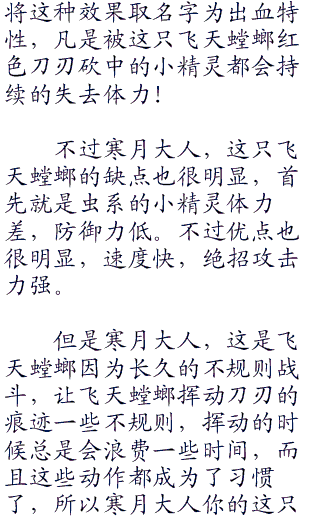 将这种效果取名字为出血特
性，凡是被这只飞天螳螂红
色刀刃砍中的小精灵都会持
续的失去体力！
不过寒月大人，这只飞
天螳螂的缺点也很明显，首
先就是虫系的小精灵体力
差，防御力低。不过优点也
很明显，速度快，绝招攻击
力强。
但是寒月大人，这是飞
天螳螂因为长久的不规则战
斗，让飞天螳螂挥动刀刃的
痕迹一些不规则，挥动的时
候总是会浪费一些时间，而
且这些动作都成为了习惯
了，所以寒月大人你的这只